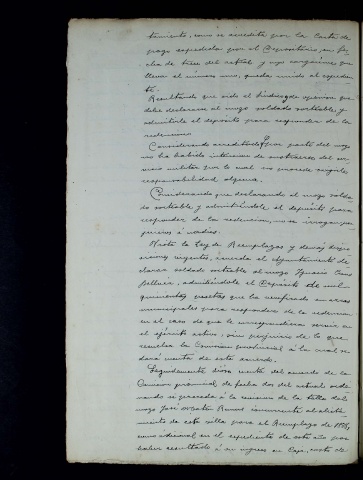 tamiento, como se acredita por la Carta de
pago expedida por el Depositario, en fe-
cha de trece del actual y cuyo resguardo que
lleva el número uno, queda unido al expedien-
te.
Resultando que oido el Síndico, es de opinion que
debe declararse al mozo soldado sorteable, y
admitirle el depósito para responder de la
redencion
Considerando acreditado que por parte del mozo
no ha habido intencion de sustraerse del ser-
vicio militar por lo cual no procede exigirle
responsabilidad alguna.
Considerando que declarando al mozo solda-
do sorteable y admitiéndole el depósito para
responder de la redencion, no se irrogan per-
juicios á nadie.
Vista la Ley de Reemplazos y demás dispo-
siciones vigentes, acuerda el Ayuntamiento de-
clarar soldado sorteable al mozo Ignacio
Bellver, admitiéndole el depósito de mil
quinientas pesetas que ha verificado en arcas
municipales para responder de la redencion
en el caso de que le correspondiera servir en
el ejército activo, sin perjuicio de lo que
resuelva la Comision provincial á la cual se
dará cuenta de este acuerdo.
Seguidamente dióse cuenta del acuerdo de la
Comision provincial, de fecha dos del actual orde-
nando se proceda á la remision de la talla del
mozo José concurrente al alista-
miento de esta villa para el Reemplazo de
como adicional en el expediente de este año por
haber resultado á su ingreso en Caja, corto de